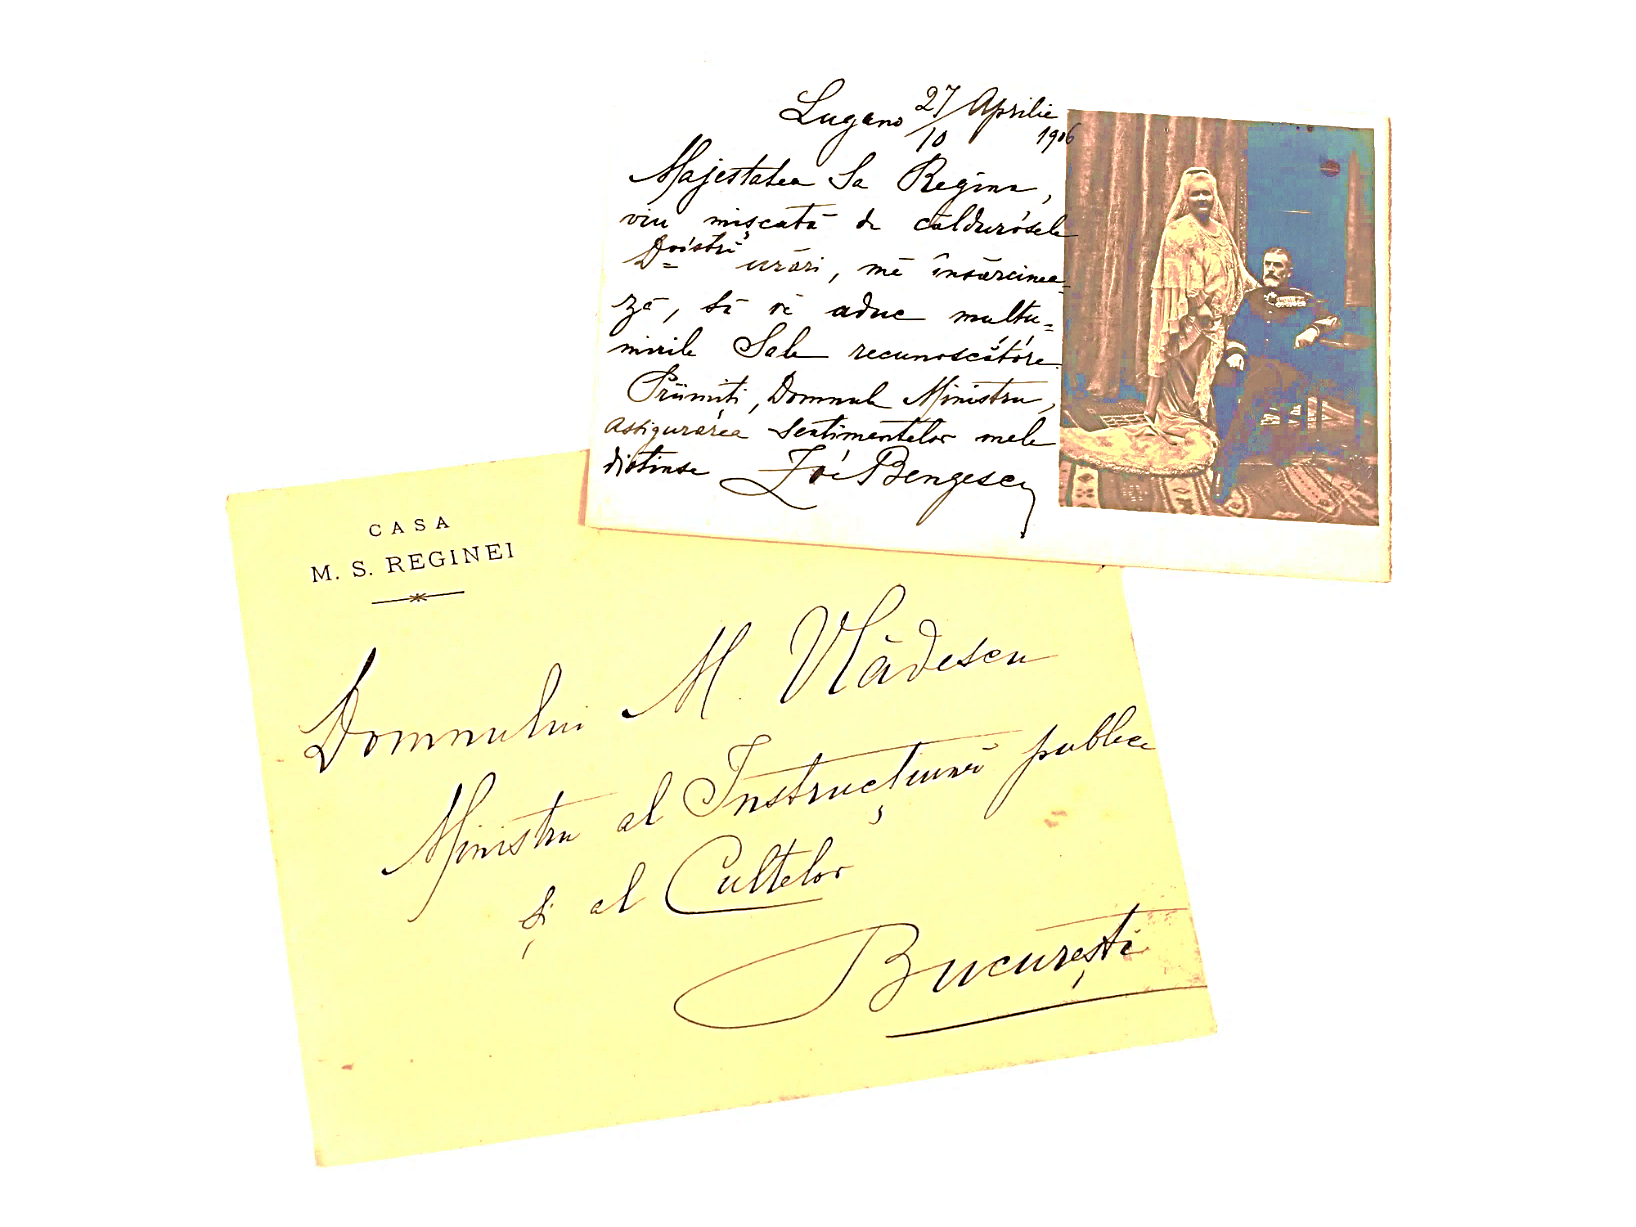 Lugano 27/10 Aprilie 1906
Majestatea Sa Regina,
viu mișcată de căldurósele
D-voastră urări, mĕ însărcinea-
ză, să vĕ aduc mulțu-
mirile Sale recunoscătóre.
Priimiți, Domnule Ministru,
assigurarea sentimentelor mele
distinse Zoé Bengescu
CASA
M. S. REGINEI
Domnului M. Vlădescu
Ministru al Instrucțiunii publice
și al Cultelor
București